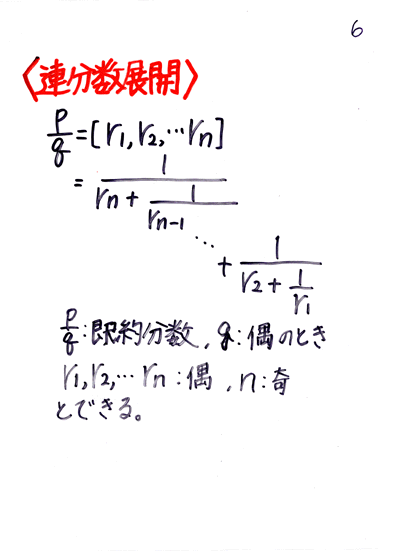 6
〈連分数展開〉
p/q = [r1, r2, … rn]
= 1/(rn + 1/(rn-1 ⋱ + 1/(r2 + 1/r1)))
p/q : 既約分数, q : 偶のとき
r1, r2, … rn : 偶, n : 奇
とできる。